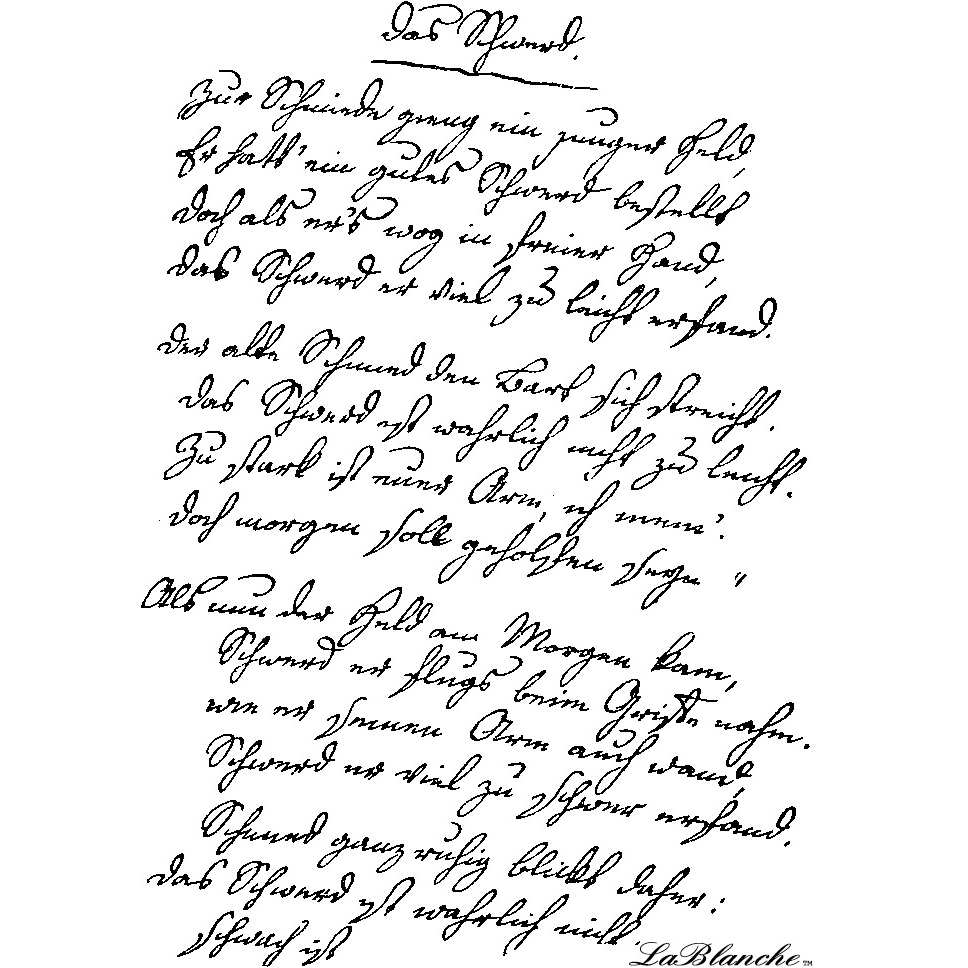 das Schwerd.
Zur Schmiede gieng ein junger Held,
Er hatt' ein gutes Schwerd bestellt
doch als er's wog in freier Hand,
das Schwerd er viel zu leicht erfand.
der alte Schmied den Bart sich streicht.
das Schwerd ist wahrlich nicht zu leicht.
Zu stark ist euer Arm, ich mein'.
doch morgen soll geholfen seyn "
Als nun der Held am Morgen kam,
Schwerd er flugs beim Griffe nahm.
wie er seinen Arm auch wand,
Schwerd er viel zu schwer erfand.
Schmied ganz ruhig blickt daher:
das Schwerd ist wahrlich nicht
schwach ist
LaBlanche™